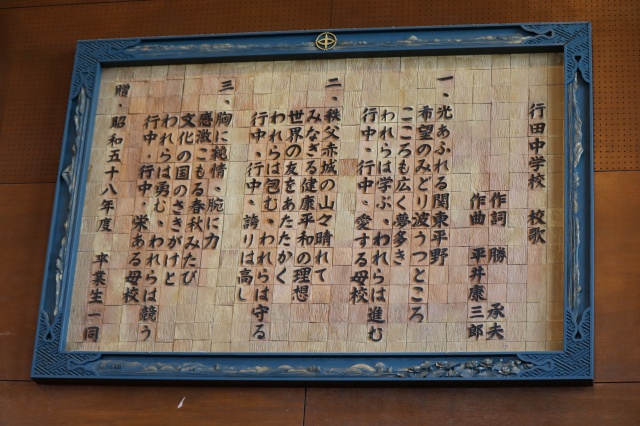 行田中学校 校歌
作詞 勝 承夫
作曲 平井康三郎
一、光あふれる関東平野
希望のみどり波うつところ
こころも広く夢多き
われらは学ぶ、われらは進む
行中、行中、愛する母校
二、秩父赤城の山々晴れて
みなぎる健康平和の理想
世界の友をあたたかく
われらは包む、われらは守る
行中、行中、誇りは高し
三、胸に純情、腕に力
感激こもる春秋みたび
文化の国のさきがけと
われらは勇む、われらは競う
行中、行中、栄ある母校
贈・昭和五十八年度 卒業生一同